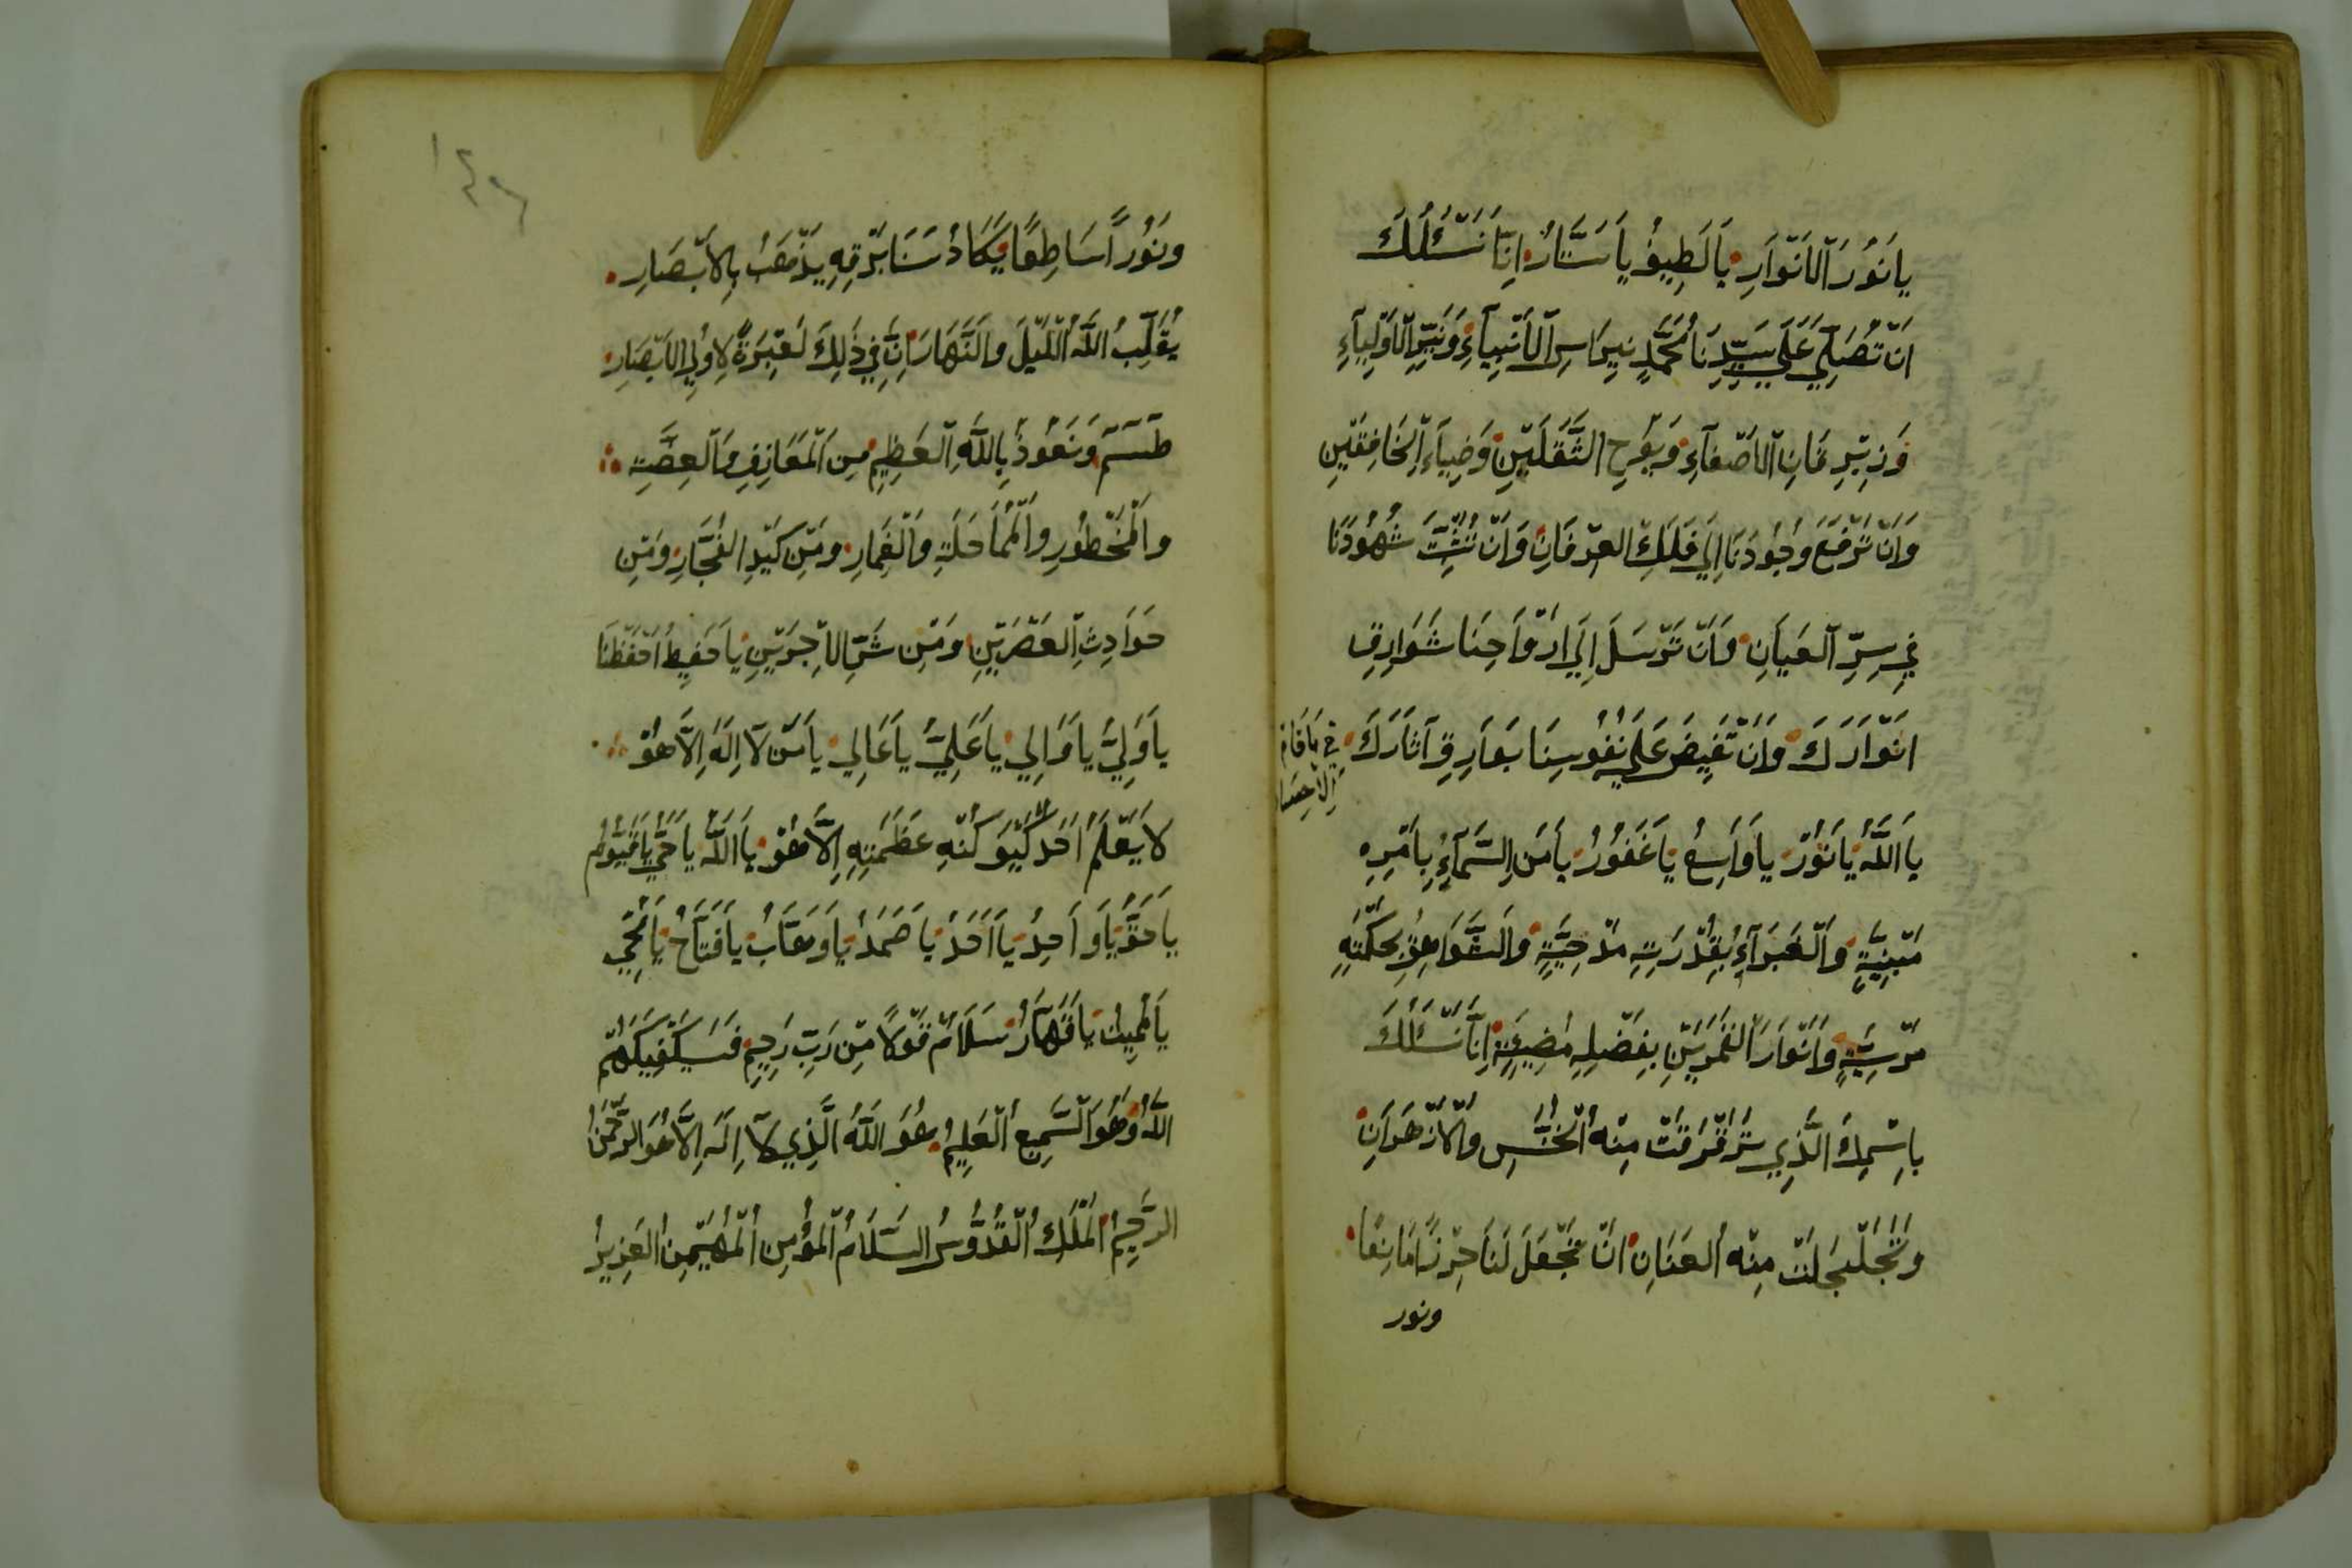 يَا نُورَ الْاَنْوَارِ يَا لَطِيفُ يَا سَتَّارُ اِنَّا نَسْئَلُكَ
اَنْ تُصَلِّيَ عَلَي سَيِّدِنَا مُحَمَّدٍ نِبْرَاسِ الْاَنْبِيَآءِ وَنَيِّرِ الْاَوْلِيَآءِ
وَزِبْرِقَانِ الْاَصْفِيَآءِ وَيُوحِ الثَّقَلَيْنِ وَضِيَآءِ الْخَافِقَيْنِ
وَاَنْ تَرْفَعَ وُجُودَنَا اِلَي فَلَكِ الْعِرْفَانِ وَاَنْ تُثَبِّتَ شُهُودَنَا
فِي سِرِّ الْعَيَانِ وَاَنْ تَرْسَلَ اِلَي اَرْوَاحِنَا شَوَارِقِ
اَنْوَارَكَ وَاَنْ تَفِيضَ عَلَي نُفُوسِنَا بَوَارِقِ آثَارَكَ
في
يَا اَللَّهُ يَا نُوْرُ يَا وَاسِعُ يَا غَفُورُ يَا مَنِ السَّمَآءُ بِاَمْرِهِ
مَبْنِيَّةٍ وَالْغَبْرَآءُ بِقُدْرَتِهِ مَدْحِيَّةٍ وَالشَّوَاهِقُ بِحِكْمَتِهِ
مَرْسِيَّةٍ وَاَنْوَارَ الْقَمَرَيْنِ بِفَضْلِهِ مُضِيئَةٍ اِنَّا نَسْئَلُكَ
بِاسْمِكَ الَّذِي تَرَقْرَقَتْ مِنْهُ الْخُنَّسِ وَالْاَزْهَرَانِ
وَتَجَلْجَلَتْ مِنْهُ الْعَنَانِ اَنْ تَجْعَلَ لَنَا حِرْزًا مَانِعًا
ونور
وَنُوْرًا سَاطِعًا يَكَادُ سَنَا بَرْقِهِ يَذْهَبُ بِالْاَبْصَارِ
يُقَلِّبُ اللَّهُ الْلَيْلَ وَالنَّهَارَ اِنَّ فِي ذَلِكَ لَعِبْرَةً لِاُولِي الْاَبْصَارِ
طٓسٓمٓ وَنَعُوذُ بِاللَّهِ الْعَظِيمِ مِنَ الْمَعَازِفِ وَالْعِضَّةِ
وَالْمَحْظُورِ وَالْمُمَاحَلَةِ وَالْغِمَارِ وَمِنْ كَيْدِ الْفُجَّارِ وَمِنْ
حَوَادِثِ الْعَصْرَيْنِ وَمِنْ شَرِّ الْاَجِرَيْنِ يَا حَفِيظُ اَحْفَظْنَا
يَا وَلِيُّ يَا وَالِي يَا عَلِيُّ يَا عَالِي يَا مَنْ لَا اِلَهَ اِلَّا هُوَ
لَا يَعْلَمُ اَحَدٌ كُنْهِ عَظَمَتِهِ اِلَّا هُوَ يَا اَللَّهُ يَا حَيُّ يَا قَيُّومُ
يَا حَقُّ يَا وَاحِدُ يَا اَحَدُ يَا صَمَدُ يَا وَهَّابُ يَا فَتَّاحُ يَا مُحْيِي
يَا مُمِيتُ يَا قَهَّارُ سَلَامٌ قَوْلًا مِنْ رَبٍّ رَحِيمٍ فَسَيَكْفِيكَهُمُ
اللَّهُ وَهُوَ السَّمِيعُ الْعَلِيمُ هُوَ اللَّهُ الَّذِي لَآ اِلَهَ اِلَّا هُوَ الرَّحْمَنُ
الرَّحِيمُ الْمَلِكُ الْقُدُّوسُ السَّلَامُ الْمُؤْمِنُ الْمُهَيْمِنُ الْعَزِيزُ